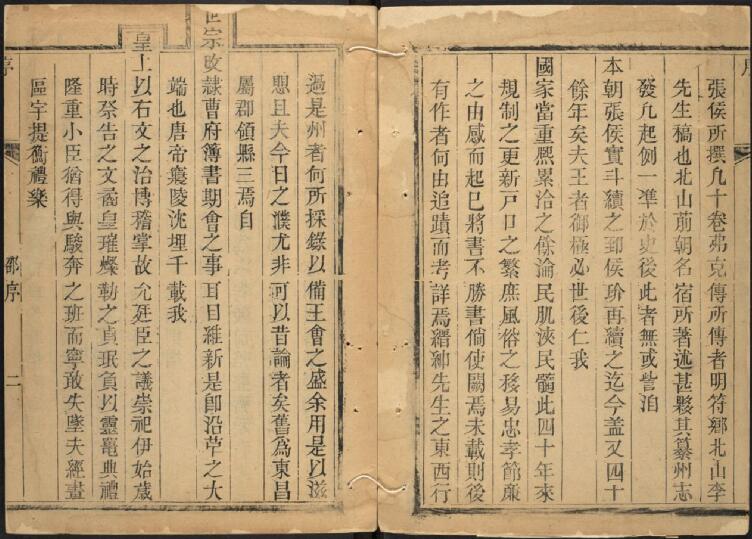 張侯所撰凡十卷弗克傳所傳者明符鄉北山李
先生稿也北山前朝名宿所著述甚夥其纂州志
發凡起例一準於史後此者無或訾洎
本朝張侯實斗續之郅侯玠再續之迄今蓋又四十
餘年矣夫王者御極必世後仁我
國家當重熈累洽之餘淪民肌浹民髓此四十年來
規制之更新戸口之繁庶風俗之移易忠孝節廉
之由感而起已將書不勝書倘使闕焉未載則後
有作者何由追蹟而考詳焉縉紳先生之東西行
過是州者何所採錄以備王會之盛余用是以滋
思且夫今日之濮尤非可以昔論者矣舊爲東昌
屬郡領縣三焉自
世宗改隷曹府簿書期會之事耳目維新是卽沿革之大
端也唐帝㝫陵沈埋千載我
皇上以右文之治博稽掌故允廷臣之議崇祀伊始歲
時祭告之文矞皇璀燦勒之貞珉負以靈鼉典禮
隆重小臣猶得與駿奔之班而寧敢失墜夫經畫
區宇提衡禮樂
序
郅序
二